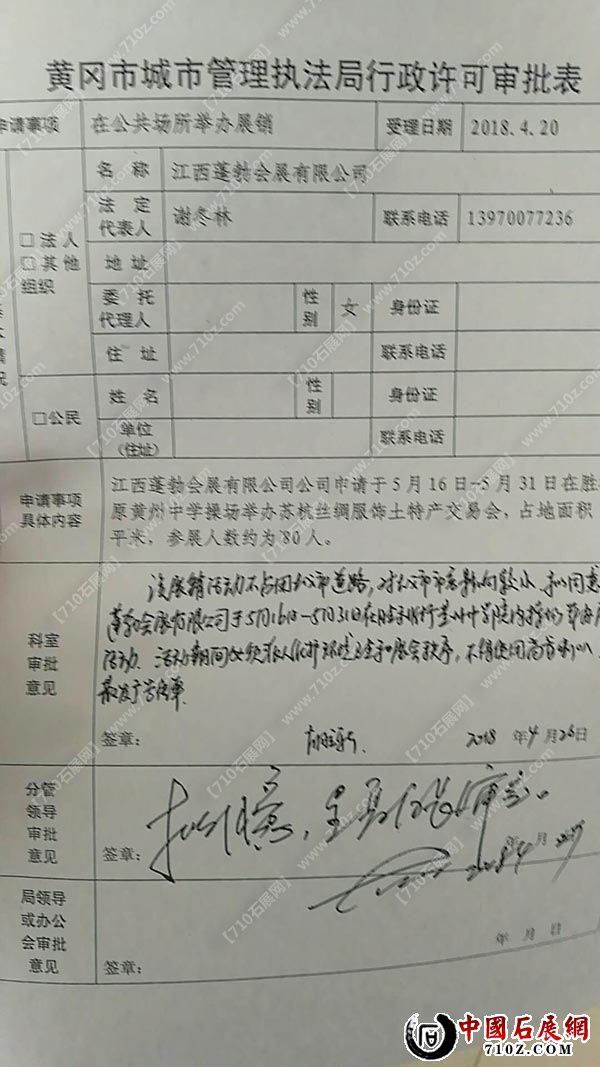 黄冈市城市管理执法局行政许可审批表
申请事项 在公共场所举办展销 受理日期 2018.4.20
名 称 江西蓬勃会展有限公司
法 定
代表人 谢冬林 联系电话 13970077236
□法人
□其他
组织
地 址
委 托
代理人 性别 女 身份证
住 址 联系电话
□公民
姓 名 性别 身份证
单位
(住址) 联系电话
申请事项
具体内容
江西蓬勃会展有限公司公司申请于5月16日-5月31日在胜
原黄州中学操场举办苏杭丝绸服饰土特产交易会，占地面积
平米，参展人数约为80人。
科室
审批
意见
该展销活动不占用城市道路，对城市市容影响较小，拟同意
蓬勃会展有限公司于5月16日-5月31日在胜利街黄州中学院内操场举办
活动。活动期间必须 环境卫生和展会秩序，不得使用高音喇叭
散发广告传单
签章： 2018 年4月26日
分管
领导
审批
意见
拟同意，呈 审定。
签章： 年 月
局领导
或办公
会审批
意见
签章： 年 月 日
【710石展网】
www.710z.com
中國石展網
710Z.COM